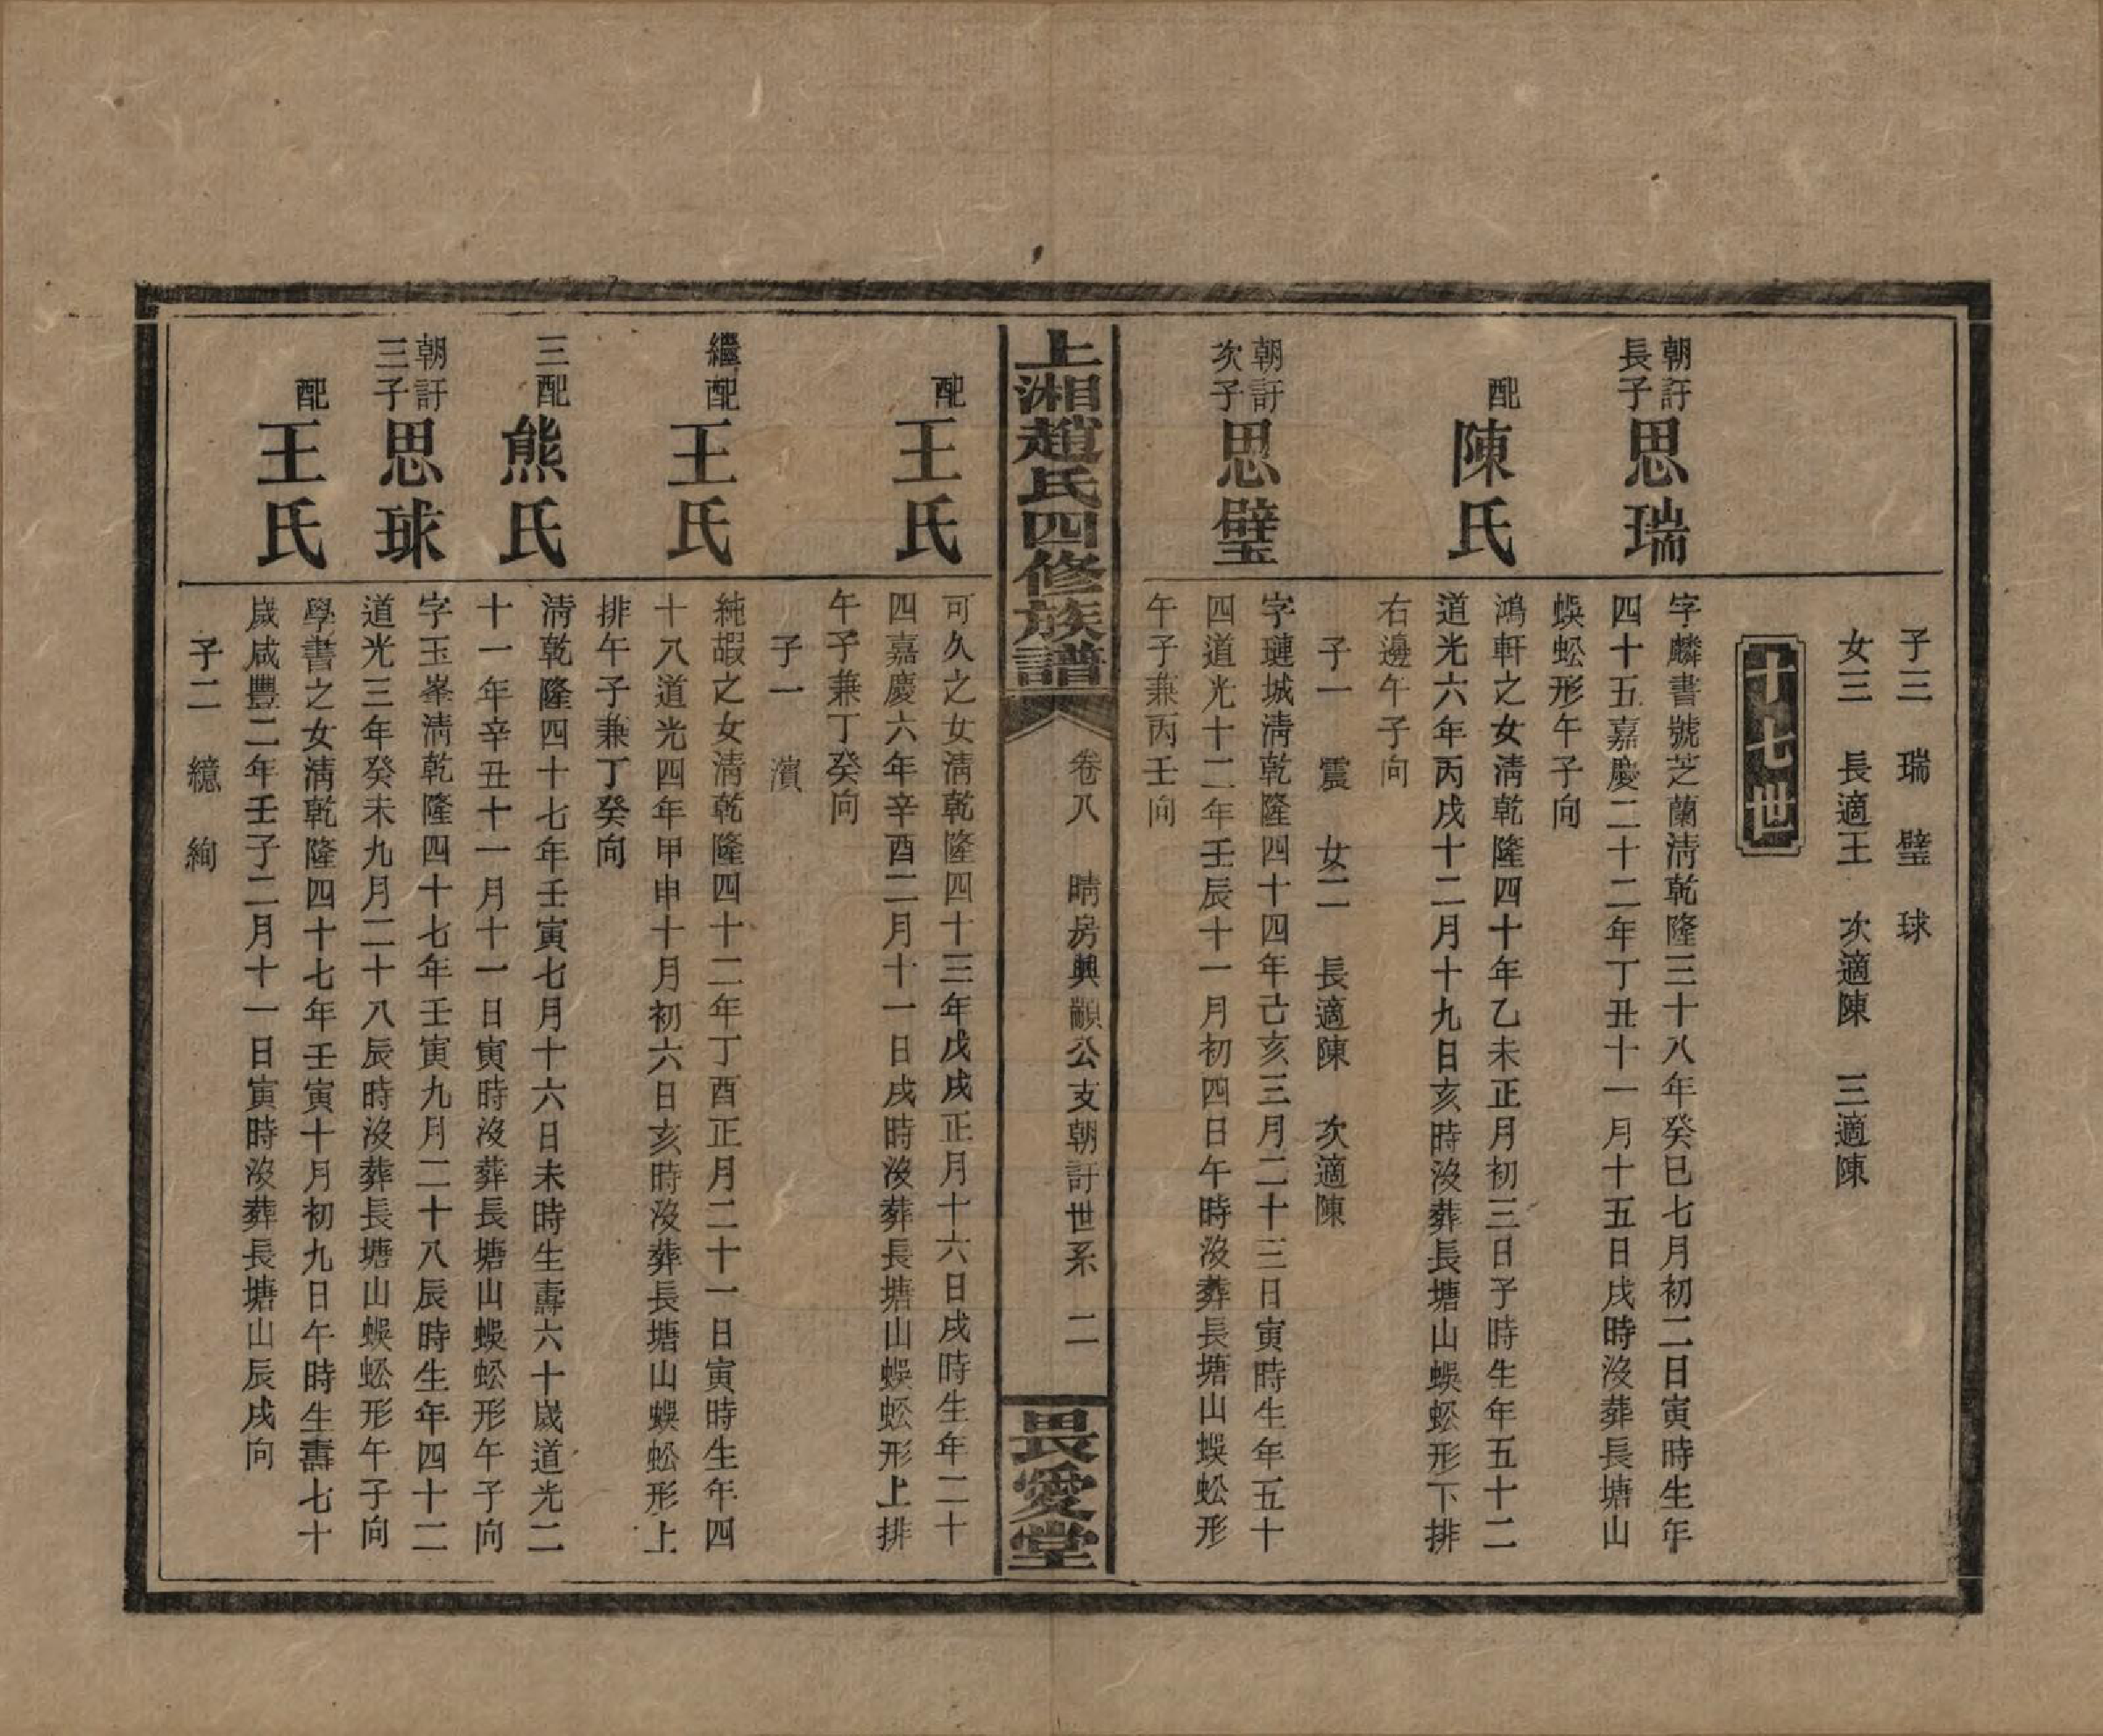 子三　瑞　璧　球
女三　長適王　次適陳　三適陳
十七世
朝訏長子　思瑞
字麟書號芝蘭清乾隆三十八年癸巳七月初二日寅時生年
四十五嘉慶二十二年丁丑十一月十五日戌時沒葬長塘山
蜈蚣形午子向
配　陳氏
鴻軒之女清乾隆四十年乙未正月初三日子時生年五十二
道光六年丙戌十二月十九日亥時沒葬長塘山蜈蚣形下排
右邊午子向
子一　震　女二　長適陳　次適陳
朝訏次子　思璧
字璉城清乾隆四十四年己亥三月二十三日寅時生年五十
四道光十二年壬辰十一月初四日午時沒葬長塘山蜈蚣形
午子兼丙壬向
上湘趙氏四修族譜
卷八　晴房興顯公支朝訏世系　二
畏愛堂
配　王氏
可久之女清乾隆四十三年戊戌正月十六日戌時生年二十
四嘉慶六年辛酉二月十一日戌時沒葬長塘山蜈蚣形上排
午子兼丁癸向
子一　濱
繼配　王氏
純嘏之女清乾隆四十二年丁酉正月二十一日寅時生年四
十八道光四年甲申十月初六日亥時沒葬長塘山蜈蚣形上
排午子兼丁癸向
三配　熊氏
清乾隆四十七年壬寅七月十六日未時生壽六十歲道光二
十一年辛丑十一月十一日寅時沒葬長塘山蜈蚣形午子向
朝訏三子　思球
字玉峯清乾隆四十七年壬寅九月二十八辰時生年四十二
道光三年癸未九月二十八辰時沒葬長塘山蜈蚣形午子向
配　王氏
學書之女清乾隆四十七年壬寅十月初九日午時生壽七十
歲咸豐二年壬子二月十一日寅時沒葬長塘山辰戌向
子二　繶　絢